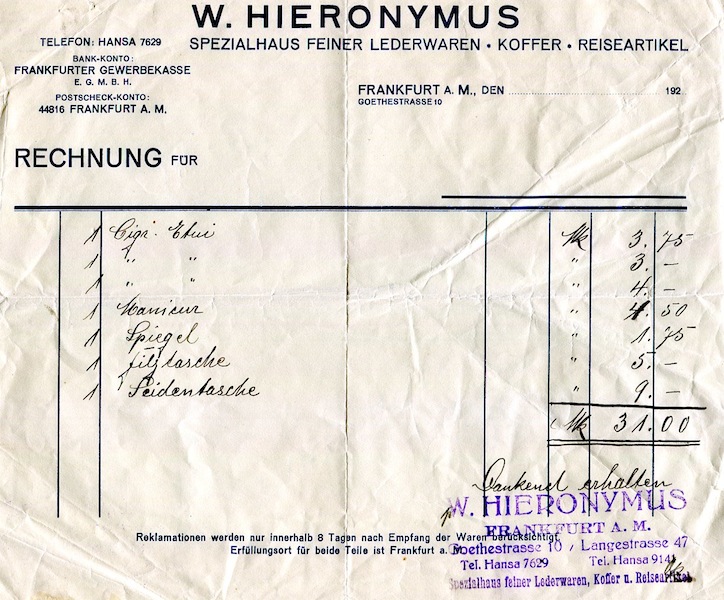 W. HIERONYMUS
TELEFON: HANSA 7629
SPEZIALHAUS FEINER LEDERWAREN • KOFFER • REISEARTIKEL
BANK-KONTO:
FRANKFURTER GEWERBEKASSE
E. G. M. B. H.
POSTSCHECK-KONTO:
44816 FRANKFURT A. M.
FRANKFURT A. M., DEN 192
GOETHESTRASSE 10
RECHNUNG FÜR
1 Cigr. Etui Mk 3.75
1 " " " 3.-
1 " " " 4.-
1 Manicur " 4.50
1 Spiegel " 1.75
1 Filztasche " 5.-
1 Seidentasche " 9.-
Mk 31.00
Dankend erhalten
W. HIERONYMUS
FRANKFURT A. M.
Goethestrasse 10 / Langestrasse 47
Tel. Hansa 7629 Tel. Hansa 914
Spezialhaus feiner Lederwaren, Koffer u. Reiseartikel
Reklamationen werden nur innerhalb 8 Tagen nach Empfang der Waren berücksichtigt.
Erfüllungsort für beide Teile ist Frankfurt a. M.